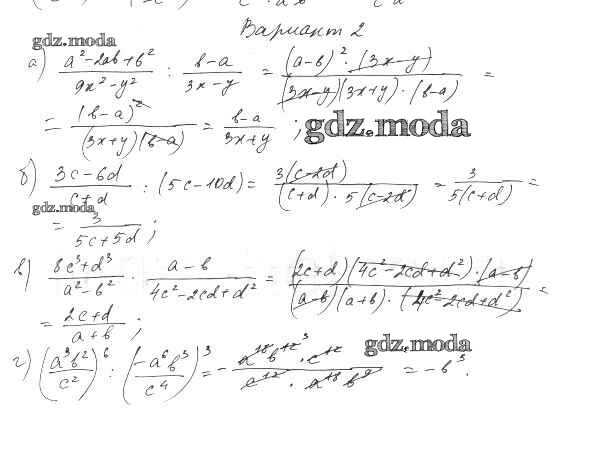 Вариант 2
gdz.moda
а) (a² - 2ab + b²)/(9x² - y²) : (b - a)/(3x - y) = ((a - b)² · (3x - y))/((3x - y)(3x + y) · (b - a)) =
= (b - a)²/((3x + y)(b - a)) = (b - a)/(3x + y) ; gdz.moda
б) (3c - 6d)/(c + d) : (5c - 10d) = 3(c - 2d)/((c + d) · 5(c - 2d)) = 3/(5(c + d)) =
gdz.moda
= 3/(5c + 5d) ;
в) (8c³ + d³)/(a² - b²) · (a - b)/(4c² - 2cd + d²) = ((2c + d)(4c² - 2cd + d²) · (a - b))/((a - b)(a + b) · (4c² - 2cd + d²)) =
= (2c + d)/(a + b) ;
gdz.moda
г) (a³b²/c²)⁶ : (-a⁶b³/c⁴)³ = - (a¹⁸b¹²³ · c¹²)/(c¹² · a¹⁸b⁹) = - b³.